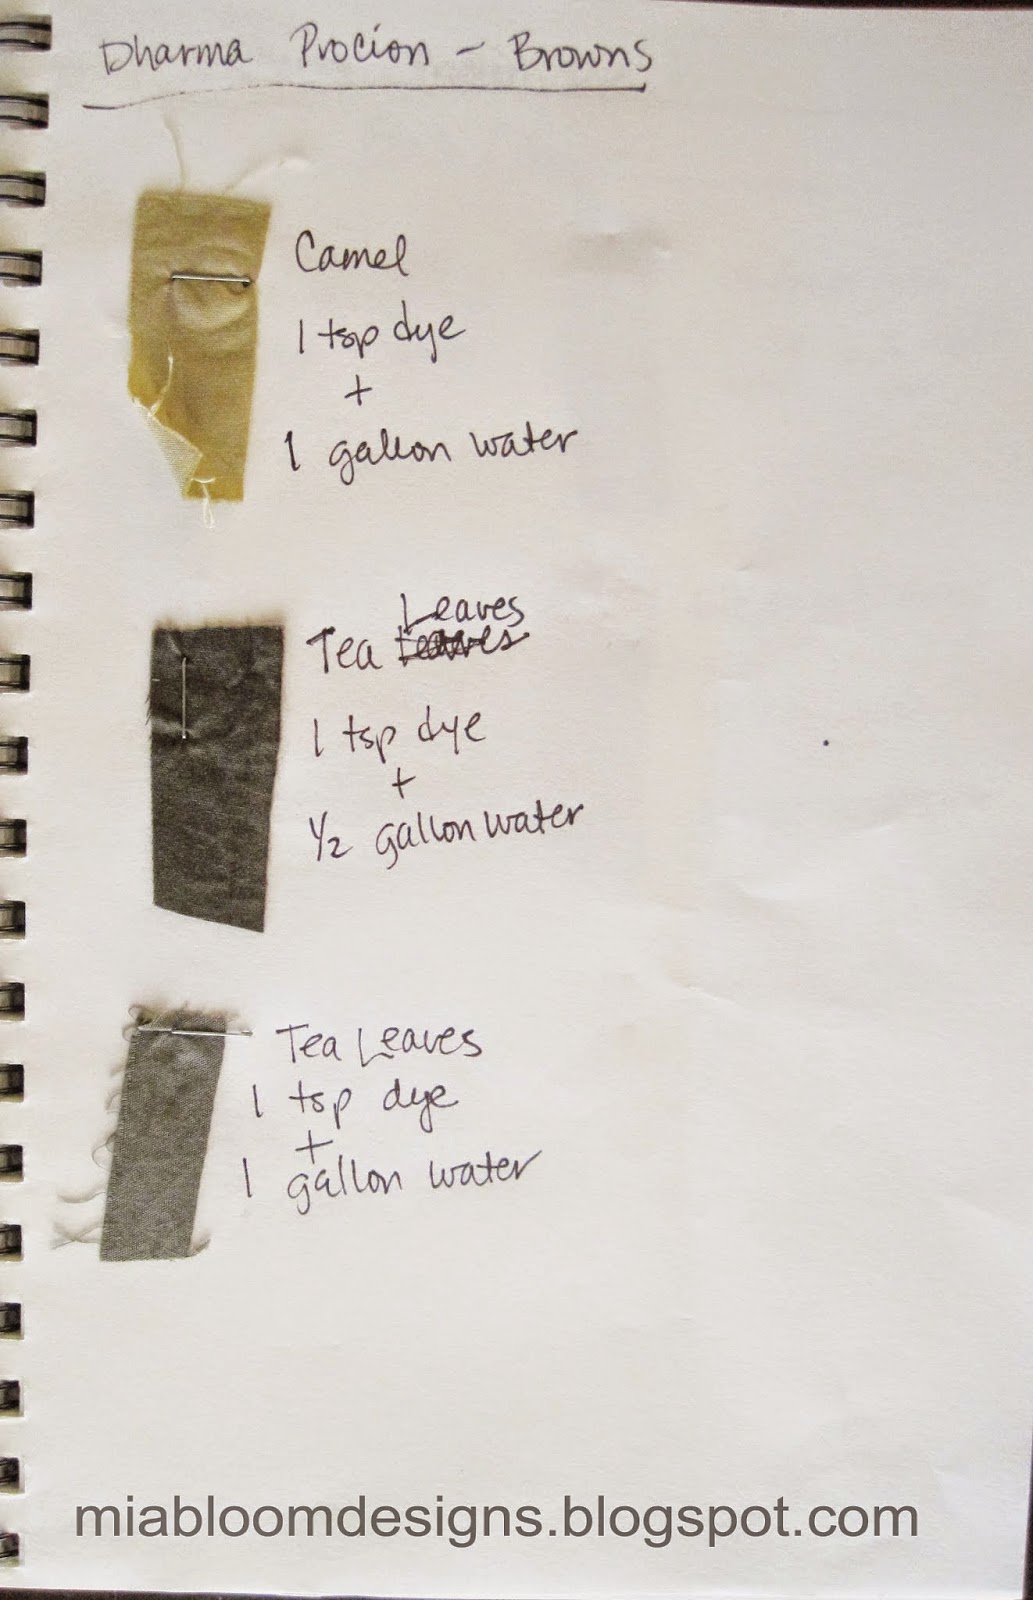 Dharma Procion - Browns
Camel
1 tsp dye
+
1 gallon water
Leaves
Tea Leaves
1 tsp dye
+
1/2 gallon water
Tea Leaves
1 tsp dye
+
1 gallon water
miabloomdesigns.blogspot.com